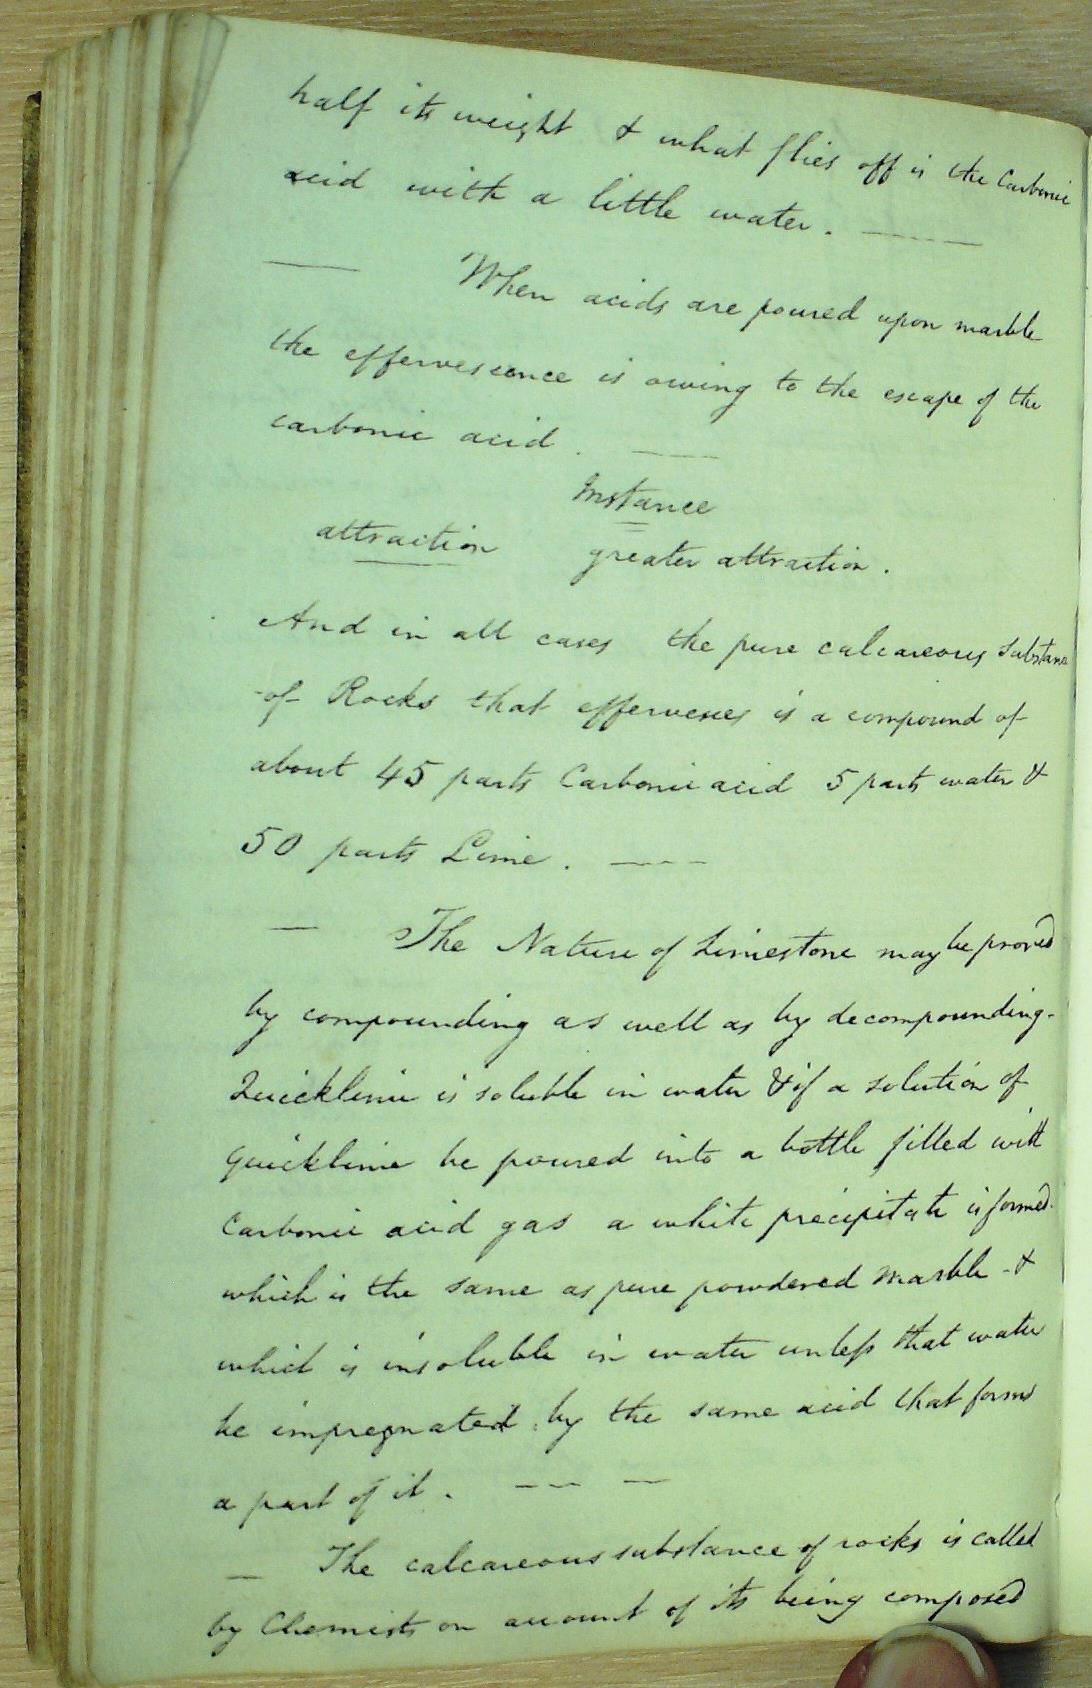 half its weight & what flies off is the Carbonic
acid with a little water. ———
— When acids are poured upon marble
the effervescence is owing to the escape of the
carbonic acid. ——
Instance
attraction greater attraction.
And in all cases the pure calcareous substance
of Rocks that effervesces is a compound of
about 45 parts Carbonic acid 5 parts water &
50 parts Lime. ———
— The Nature of Limestone may be proved
by compounding as well as by decompounding.
Quicklime is soluble in water & if a solution of
Quicklime be poured into a bottle filled with
Carbonic acid gas a white precipitate is formed.
which is the same as pure powdered marble - &
which is insoluble in water unless that water
be impregnated by the same acid that forms
a part of it. — — —
— The calcareous substance of rocks is called
by Chemists on account of its being composed